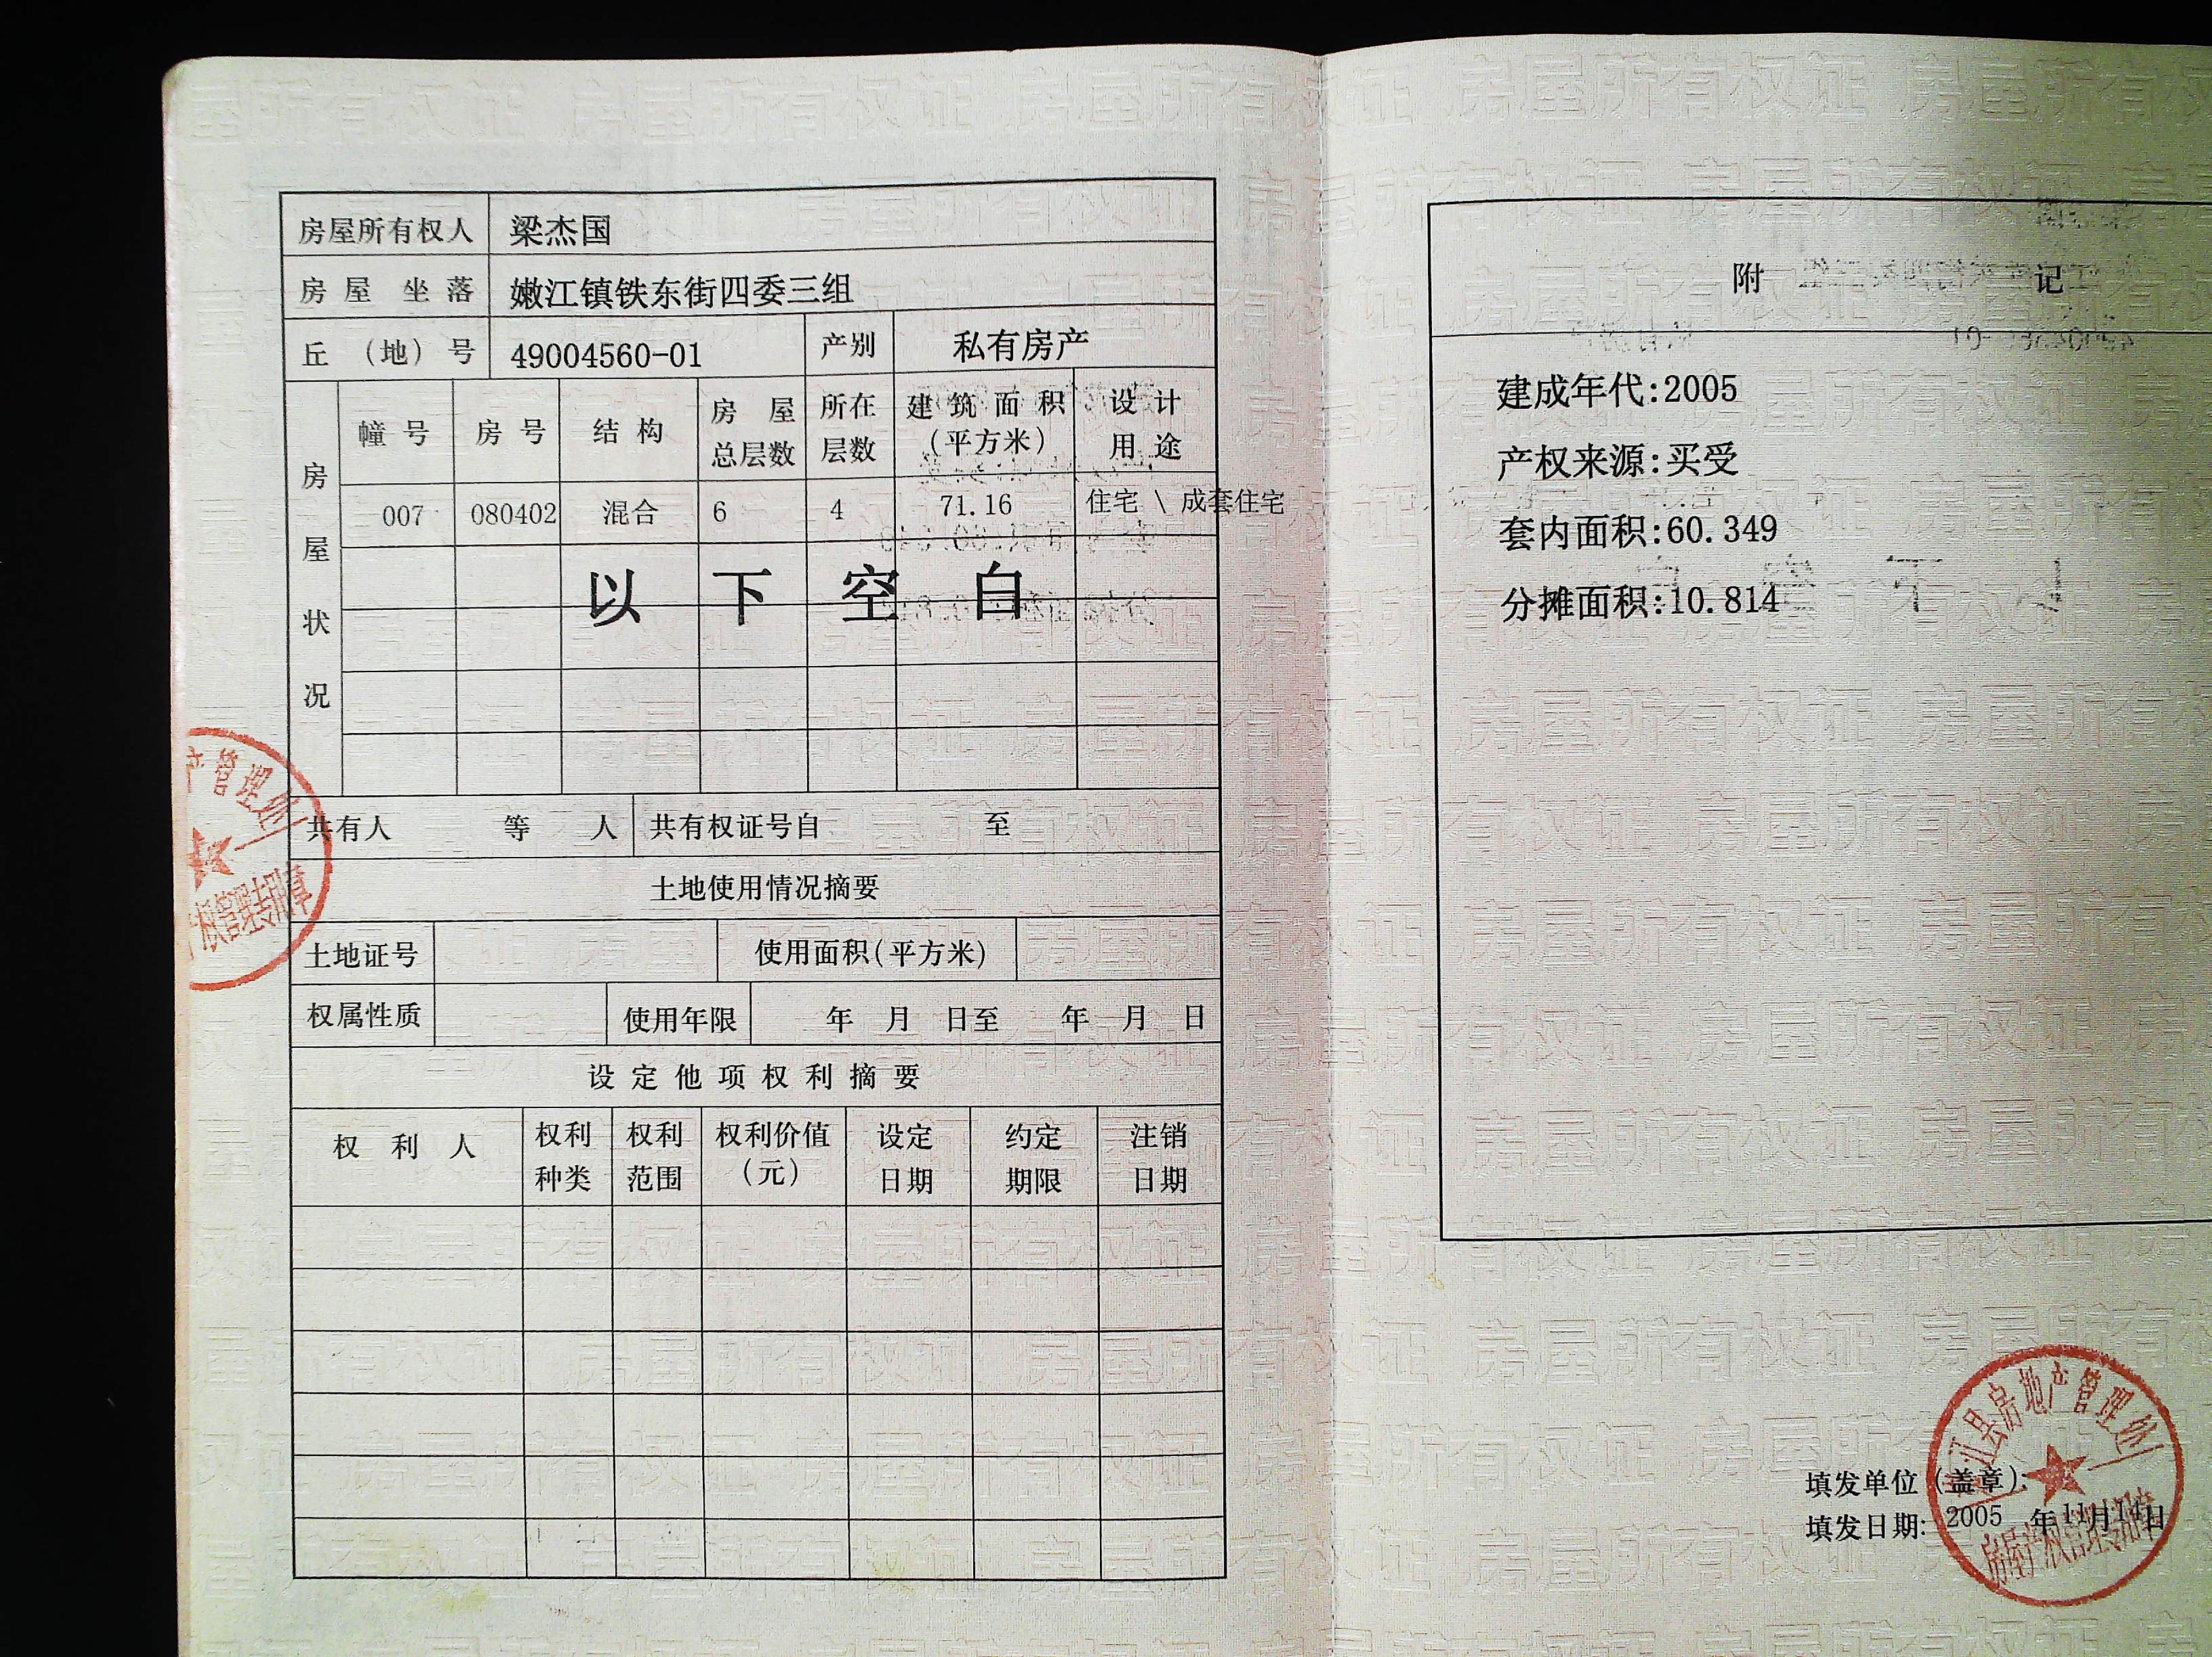 房屋所有权人 梁杰国
房屋坐落 嫩江镇铁东街四委三组
丘(地)号 49004560-01 产别 私有房产
房屋状况
幢号 房号 结构 房屋总层数 所在层数 建筑面积(平方米) 设计用途
007 080402 混合 6 4 71.16 住宅 \ 成套住宅
以下空白
共有人 等 人 共有权证号自 至
土地使用情况摘要
土地证号 使用面积(平方米)
权属性质 使用年限 年 月 日至 年 月 日
设定他项权利摘要
权利人 权利种类 权利范围 权利价值(元) 设定日期 约定期限 注销日期
产管理处
产权管理专用章
附 记
建成年代:2005
产权来源:买受
套内面积:60.349
分摊面积:10.814
填发单位(盖章):
填发日期: 2005 年11月14日
江县房地产管理处
房屋产权管理专用章
房屋所有权证